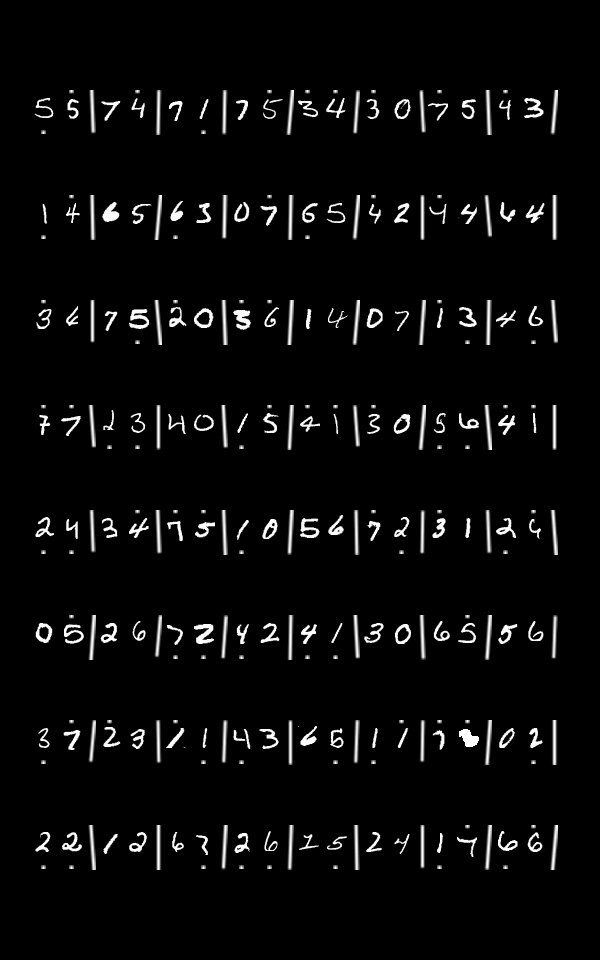 5̣ 5̇ | 7̇ 4̇ | 7 1̣̇ | 7 5̇ | 3̇ 4̇ | 3̇ 0 | 7̇ 5 | 4̇ 3 |
1̣ 4̇ | 6 5 | 6̣̇ 3 | 0 7̇ | 6̣̇ 5 | 4̇ 2 | 4̇ 4 | 6 4 |
3̇ 6 | 7 5̣ | 2̇ 0 | 3 6̇ | 1 4 | 0 7 | 1̇ 3̇ | 4 6̣ |
7̇ 7̇ | 2̣̇ 3̣̇ | 4 0 | 1̣ 5̇ | 4̇ 1̇ | 3̇ 0 | 5̣̇ 6̣ | 4̇ 1̇ |
2̣ 4̣ | 3 4̇ | 7̇ 5̇ | 1̣ 0 | 5 6 | 7̇ 2̣̇ | 3̇ 1 | 2̣ 6̇ |
0 5̇ | 2 6 | 7̣ 2̣ | 4̣ 2 | 4̣ 1̣ | 3 0 | 6 5̇ | 5 6 |
3̣ 7̇ | 2̇ 3̇ | 1̇ 1̣ | 4̣ 3 | 6 6̣ | 1̣ 1̇ | 7̇ | 0 2̣̇ |
2̣ 2̣ | 1 2 | 6 7̣ | 2̣ 6̣ | 1 5̣ | 2 4 | 1̣ 7 | 6̣ 6̇ |